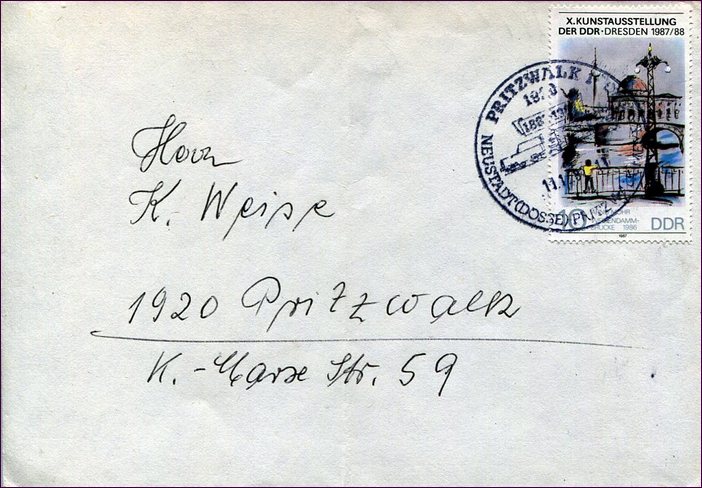 X.KUNSTAUSSTELLUNG
DER DDR·DRESDEN 1987/88
PRITZWALK
NEUSTADT(DOSSE)-PRITZW
10
DAMM-
BRÜCKE 1986
DDR
1987
Herrn
K. Weise
1920 Pritzwalk
K.-Marx Str. 59